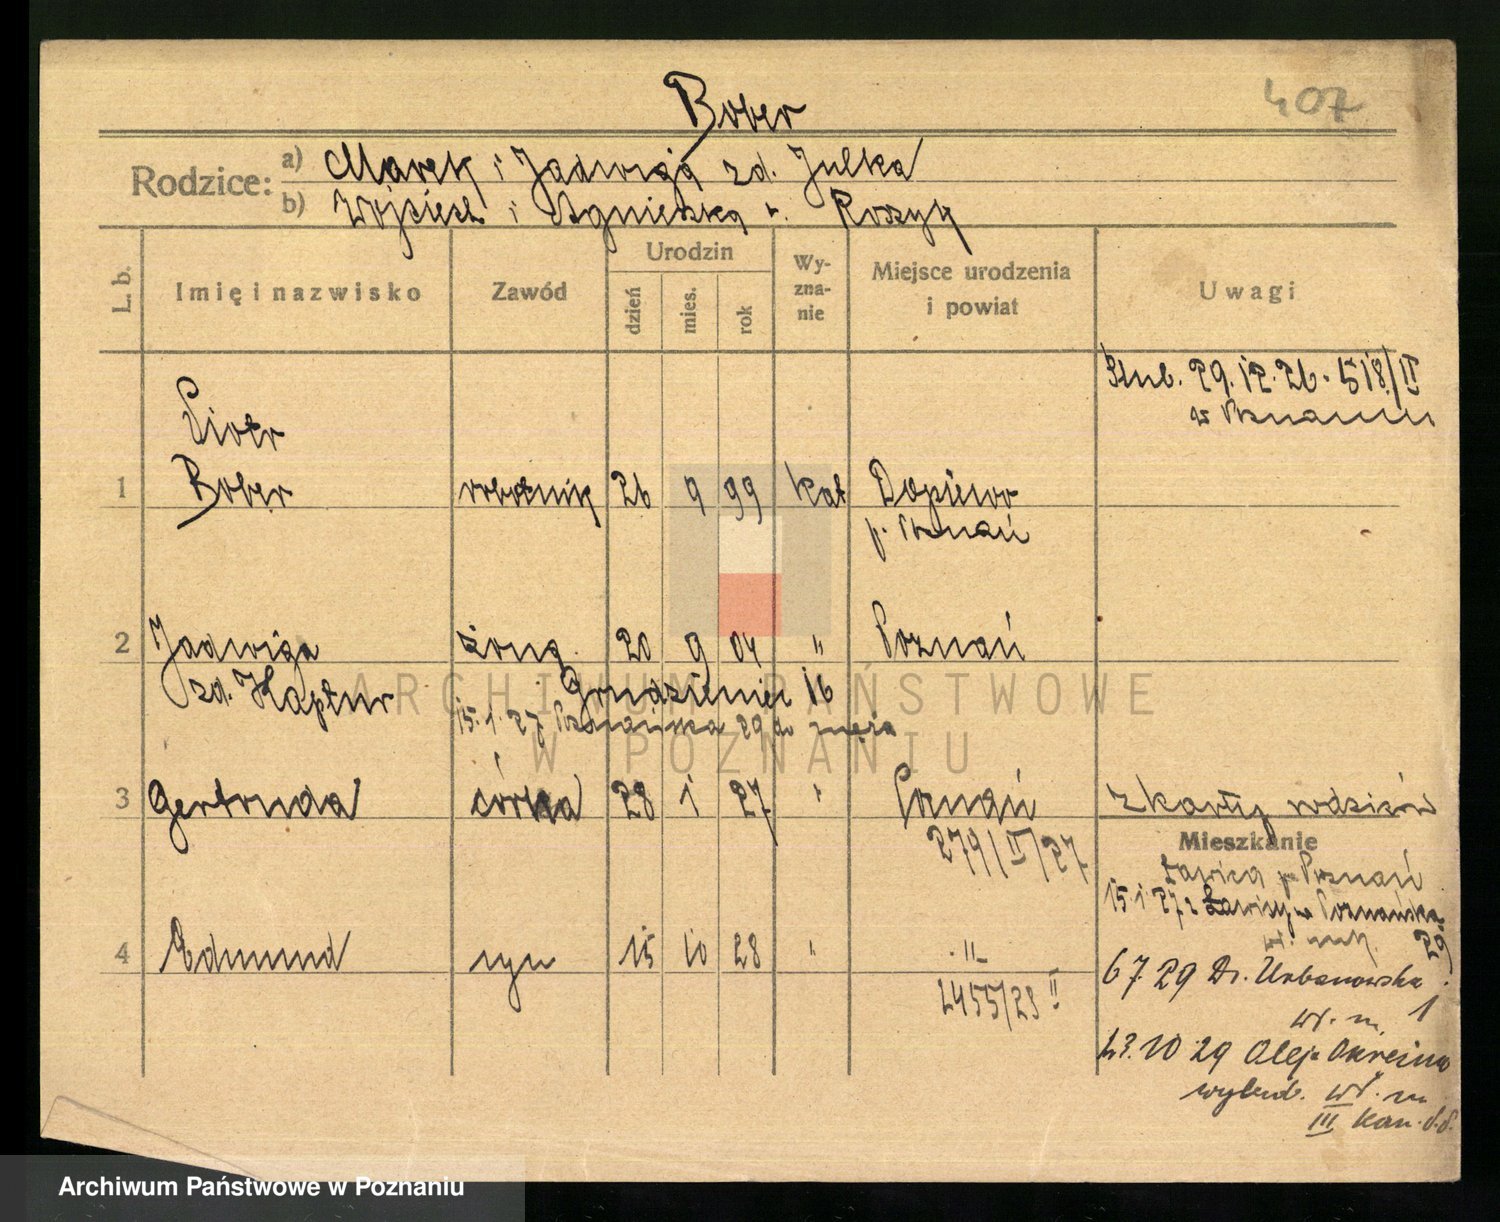 407
Bober
Rodzice:
a) Marek i Jadwiga zd. Julka
b) Wojciech i Agnieszka z.
L. b.
Imię i nazwisko
Zawód
Urodzin
dzień
mies.
rok
Wy-
zna-
nie
Miejsce urodzenia
i powiat
Uwagi
ślub. 29.12.26. 518/II
w Poznaniu
Piotr
1 Bober robotnik 26 9 99 kat Dopiewo
p. Poznań
2 Jadwiga żona 20 9 04 " Poznań
zd. Kaptur Grudzieniec 16
15.1.27 Poznańska 29 do męża
3 Gertruda córka 28 1 27 " Poznań z karty rodziców
279/II/27
Mieszkanie
Ławica p. Poznań
15.1.27 z Ławicy na Poznańska
29
4 Edmund syn 15 10 28 " -"-
2455/28 II
6 7 29 Dr. Urbanowska
1
wł. m.
23.10 29 Aleja
wł. m
III
ARCHIWUM PAŃSTWOWE
W POZNANIU
Archiwum Państwowe w Poznaniu